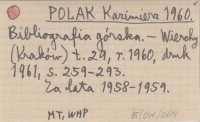 POLAK Kazimierz 1960.
Bibliografia górska. – Wierchy
(Kraków) t. 29, r. 1960, druk
1961, s. 259-293.
Za lata 1958-1959.
MT, WHP